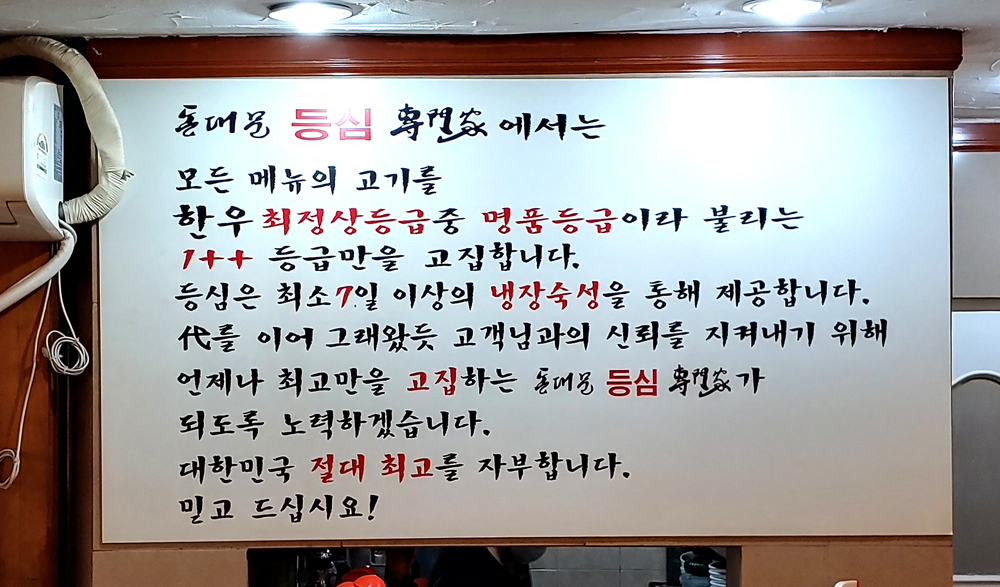 동대문 등심 專門家 에서는
모든 메뉴의 고기를
한우 최정상등급중 명품등급이라 불리는
1++ 등급만을 고집합니다.
등심은 최소7일 이상의 냉장숙성을 통해 제공합니다.
代를 이어 그래왔듯 고객님과의 신뢰를 지켜내기 위해
언제나 최고만을 고집하는 동대문 등심 專門家가
되도록 노력하겠습니다.
대한민국 절대 최고를 자부합니다.
믿고 드십시요!